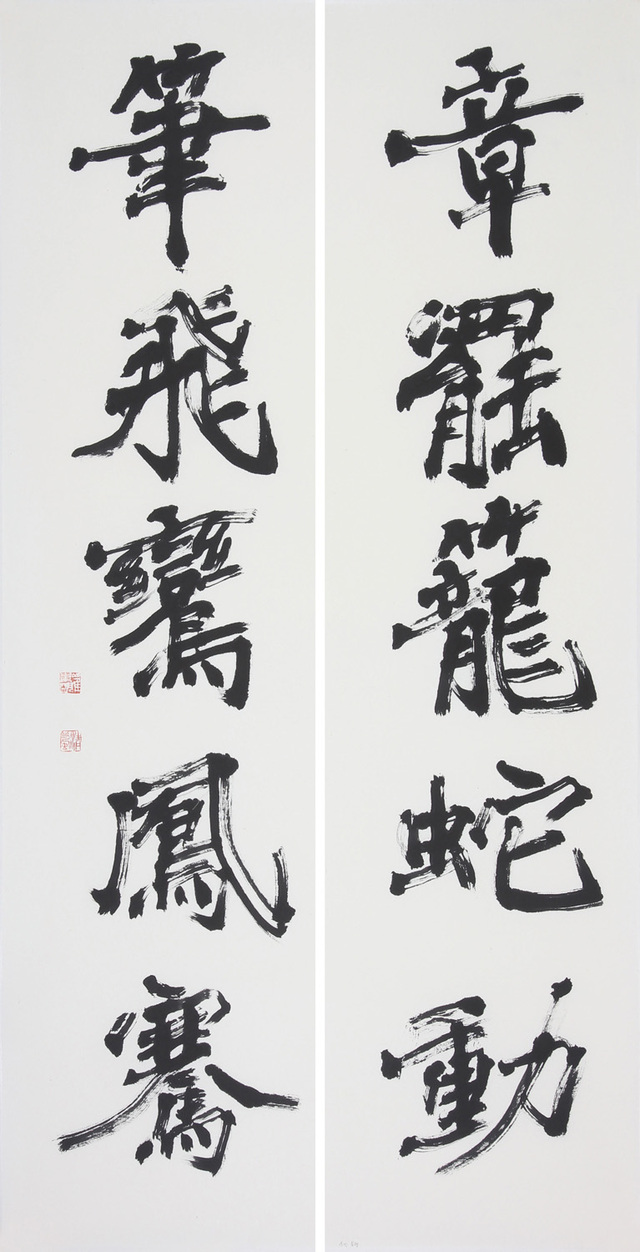 章罷籠蛇動
筆飛鸞鳳騫